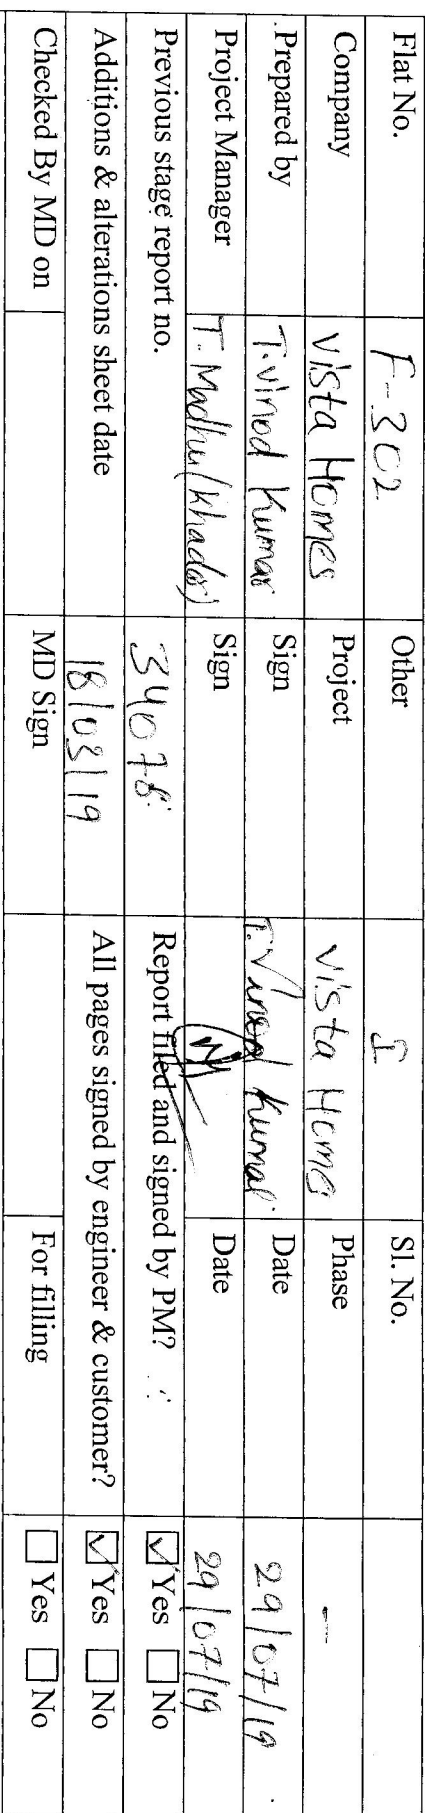 Flat No. F-302 Other Sl. No.
Company Vista Homes Project Vista Homes Phase -
Prepared by T. Vinod Kumar Sign T. Vinod Kumar Date 29/07/19
Project Manager T. Madhu (Khader) Sign Date 29/07/19
Previous stage report no. 34078 Report filed and signed by PM? ☑ Yes ☐ No
Additions & alterations sheet date 18/03/19 All pages signed by engineer & customer? ☑ Yes ☐ No
Checked By MD on MD Sign For filling ☐ Yes ☐ No